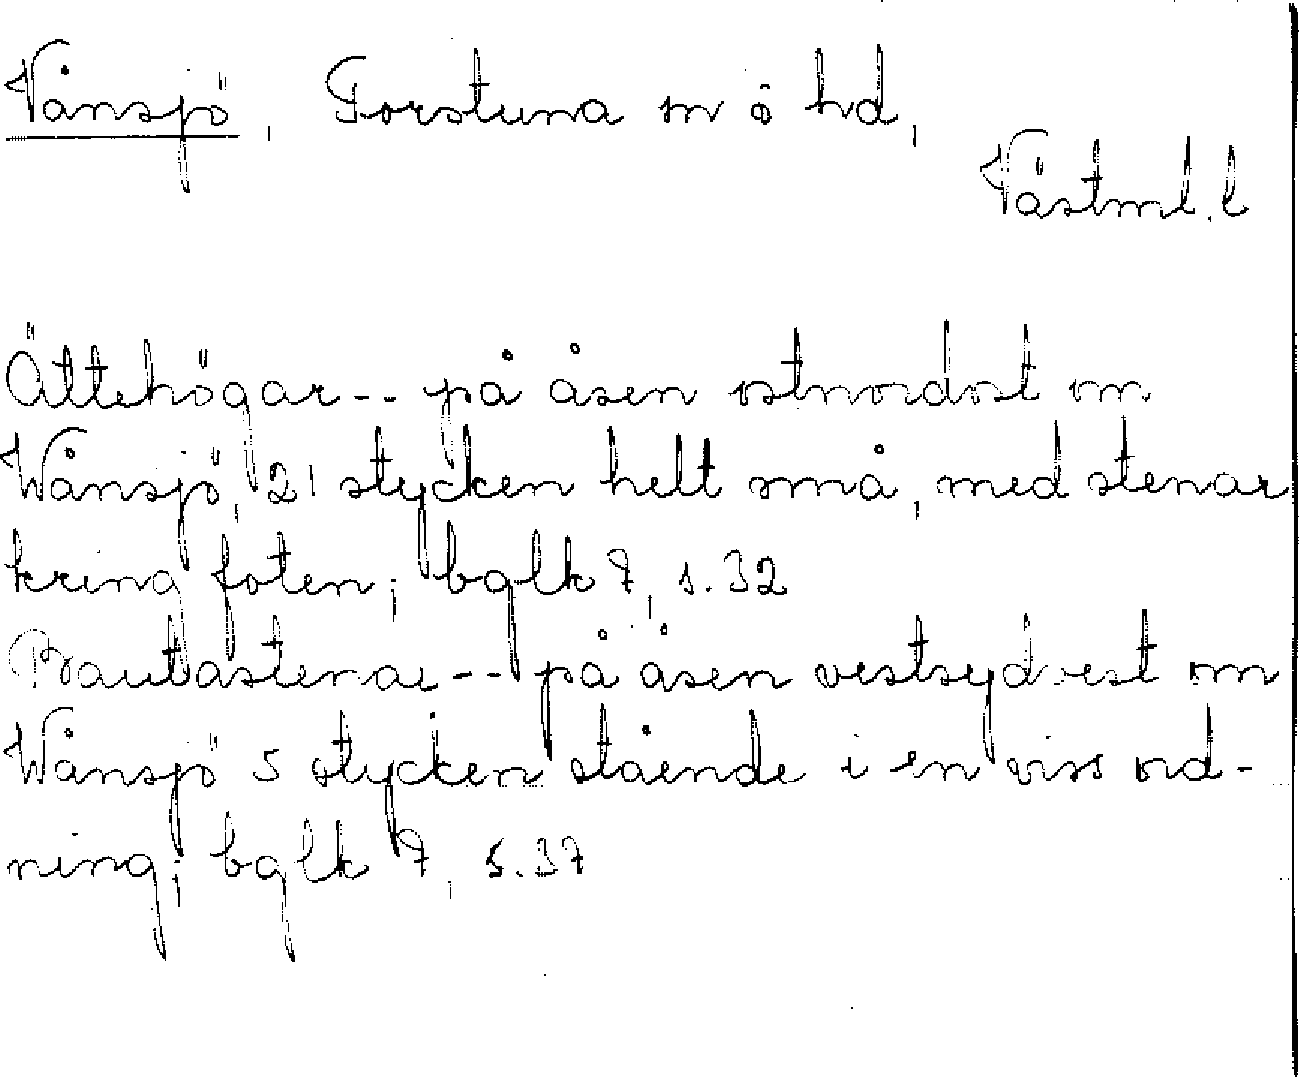 Vånsjö, Torstuna sn ö hd,
Västml. l
Ättehögar -- på åsen ostnordost om
Wånsjö, 21 stycken helt små, med stenar
kring foten; bglk 7, s. 32
Bautastenar -- på åsen vestsydvest om
Wånsjö 5 stycken stående i en viss ord-
ning; bglk 7, s. 37